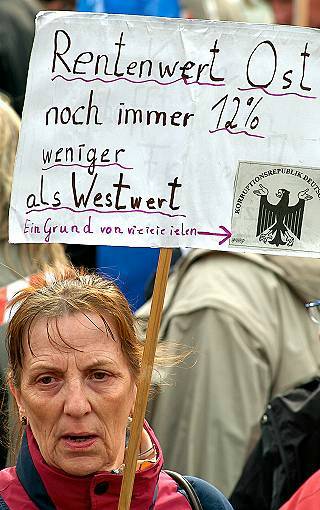 Rentenwert Ost
noch immer 12%
weniger
als Westwert
Ein Grund von vieieieielen
KORRUPTIONSREPUBLIK